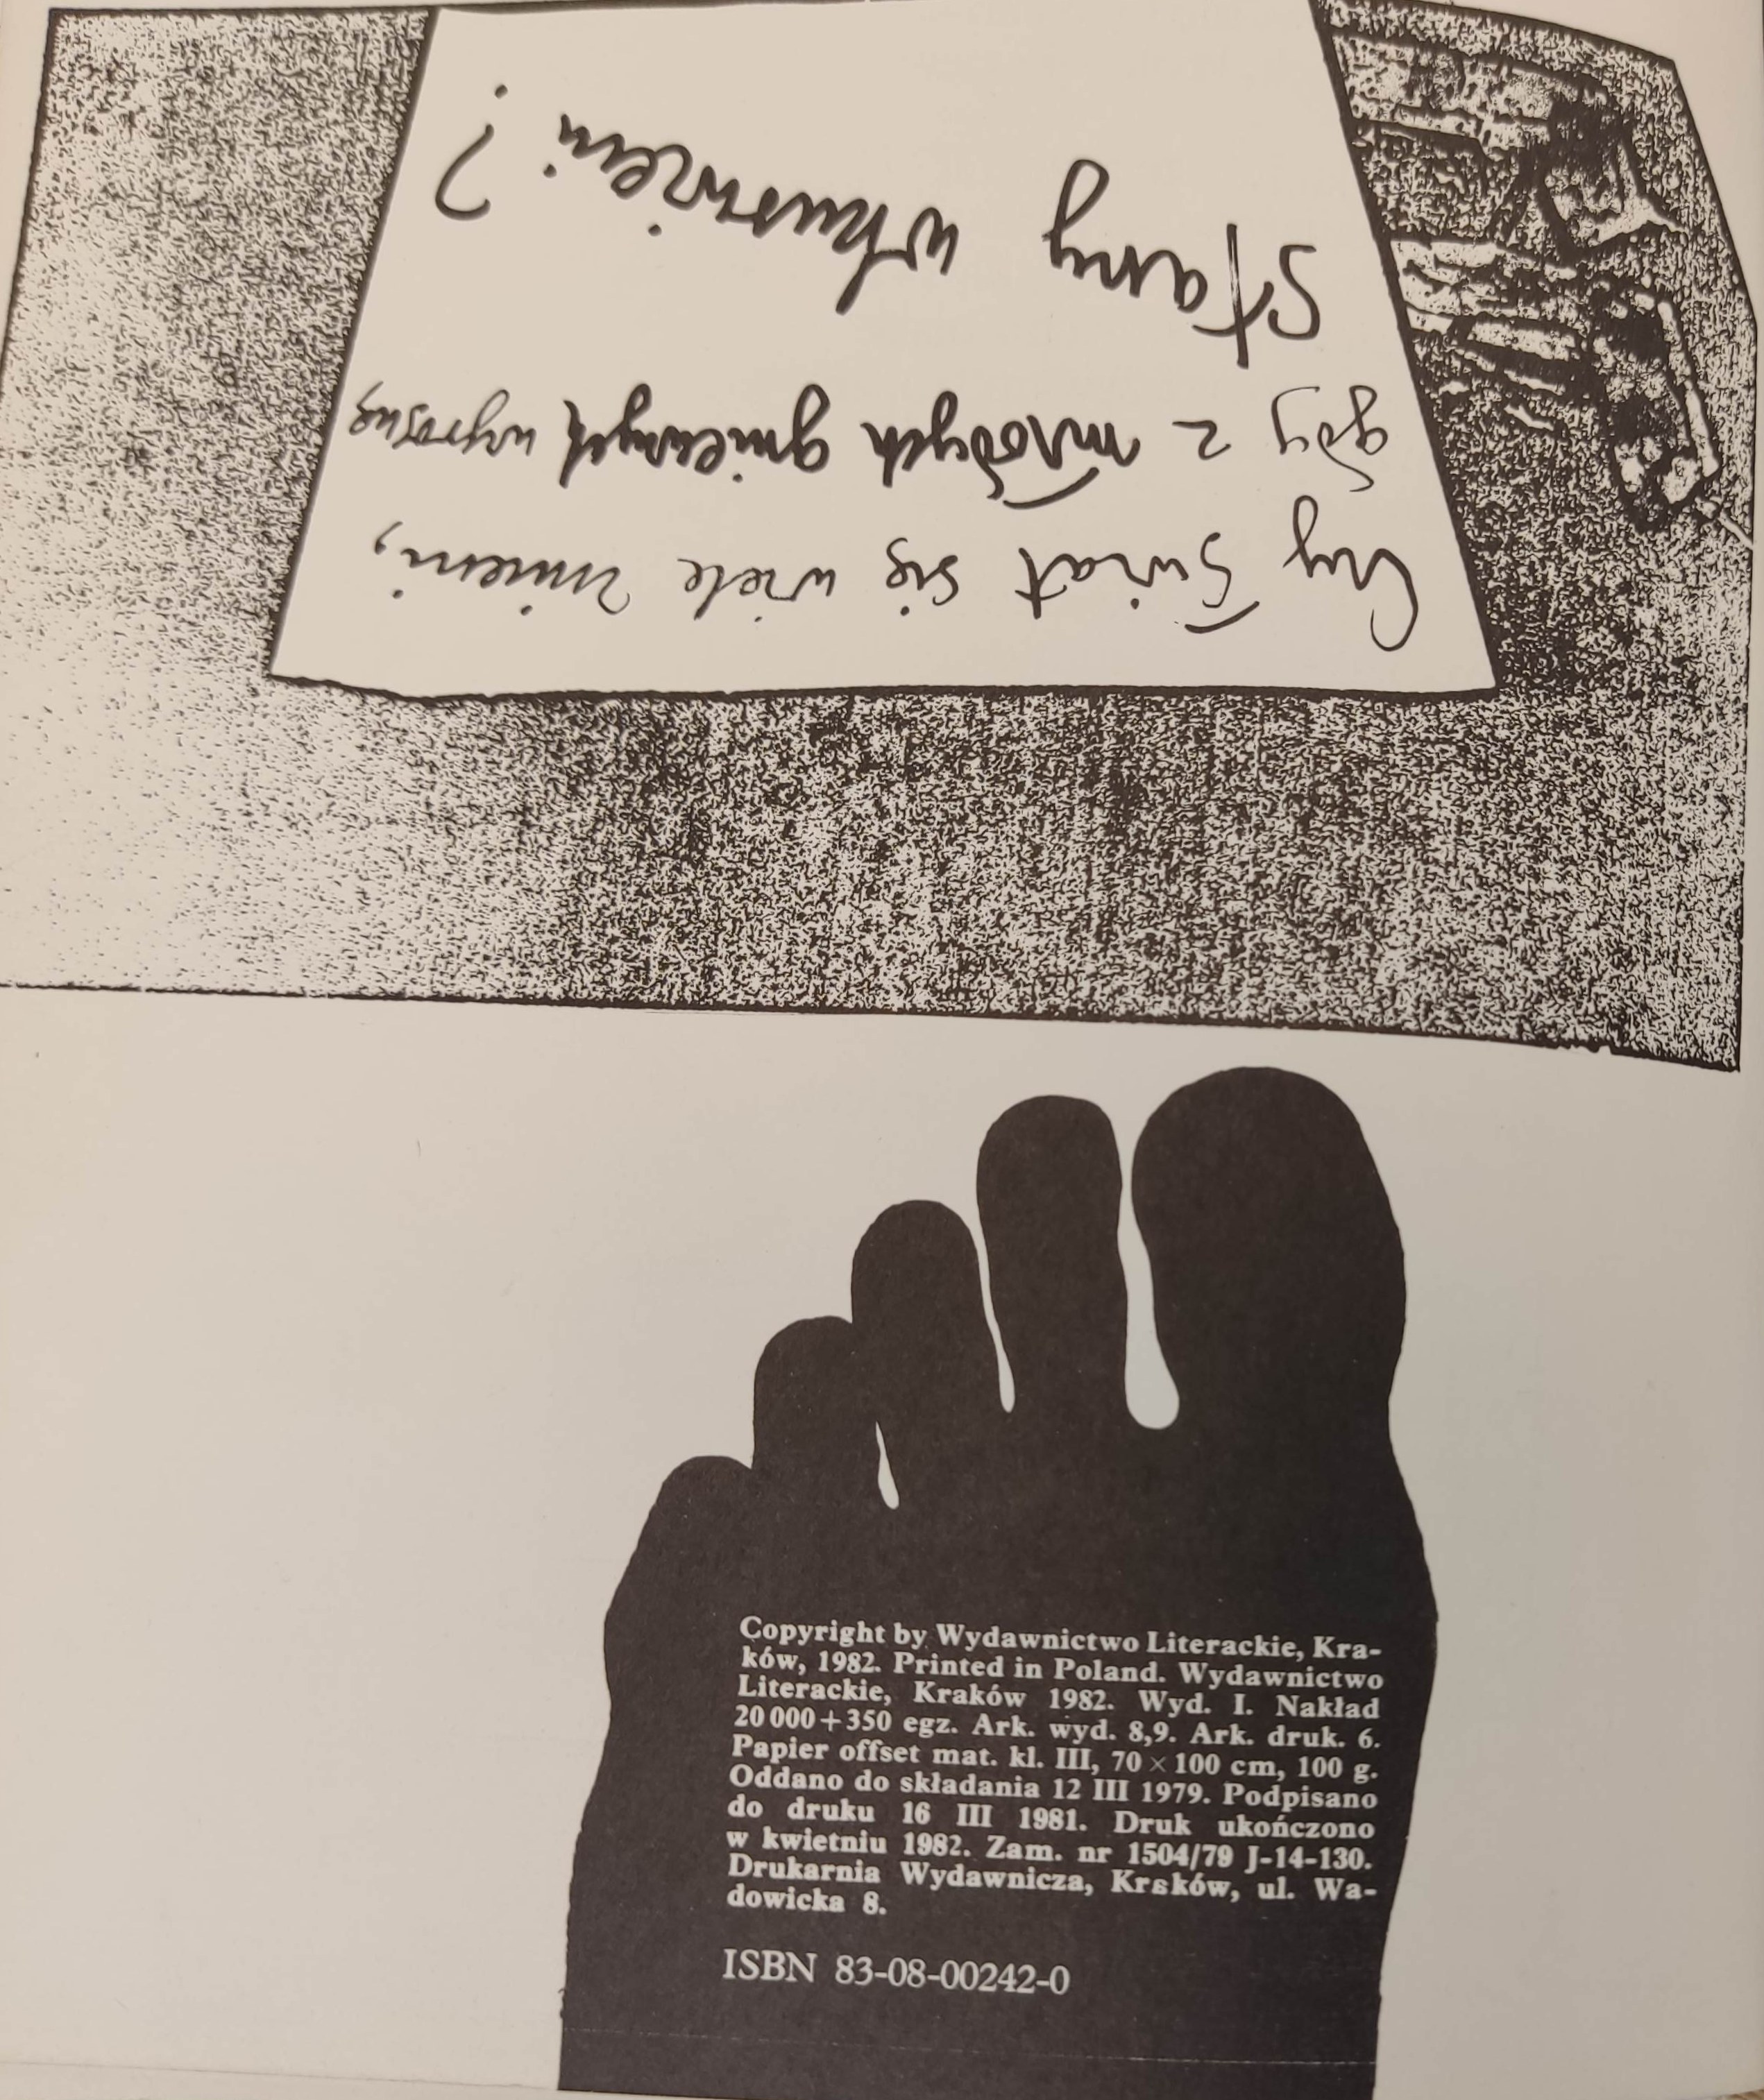 Czy świat się wiele zmieni,
gdy z młodych gniewnych wyrosną
starzy wkurwieni?
Copyright by Wydawnictwo Literackie, Kra-
ków, 1982. Printed in Poland. Wydawnictwo
Literackie, Kraków 1982. Wyd. I. Nakład
20 000+350 egz. Ark. wyd. 8,9. Ark. druk. 6.
Papier offset mat. kl. III, 70 × 100 cm, 100 g.
Oddano do składania 12 III 1979. Podpisano
do druku 16 III 1981. Druk ukończono
w kwietniu 1982. Zam. nr 1504/79 J-14-130.
Drukarnia Wydawnicza, Kraków, ul. Wa-
dowicka 8.
ISBN 83-08-00242-0